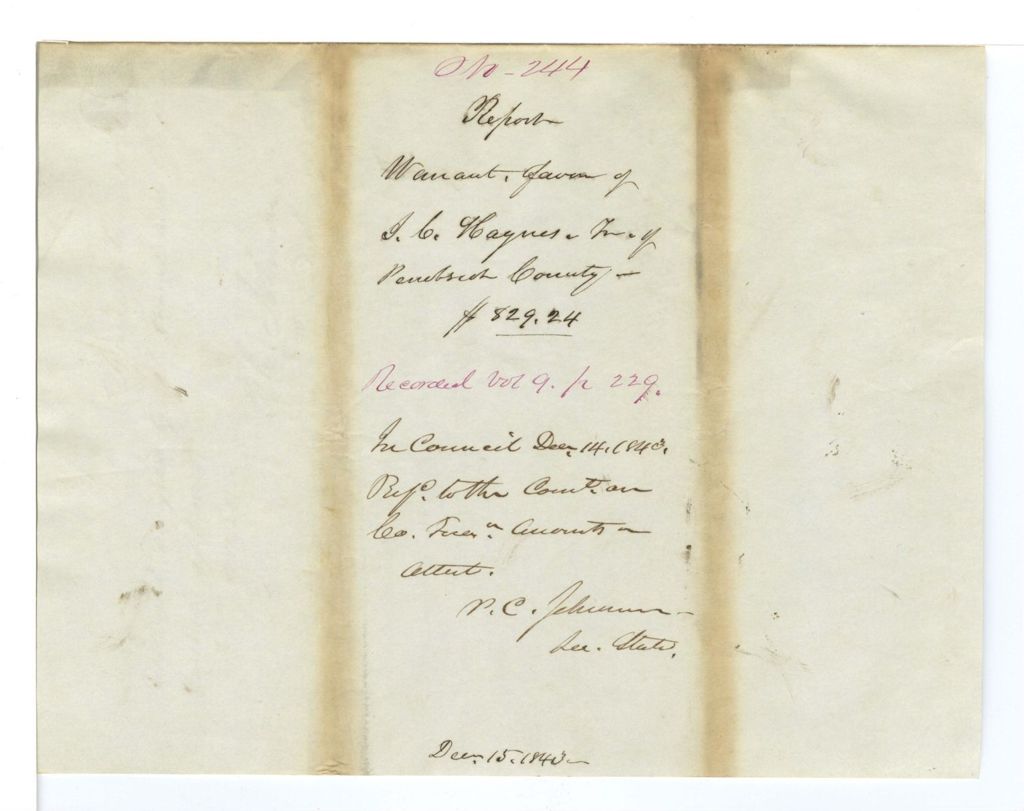 No - 244
Report
Warrant, favor of
J. C. Haynes. Tr. of
Penobscot County -
$ 829.24
Recorded Vol 9. p 229.
In Council Decr. 14. 1843.
Refd. to the Comtt. on
Co. Treasn. Accounts -
Attest.
P. C. Johnson -
Sec. State.
Decr. 15. 1843 -